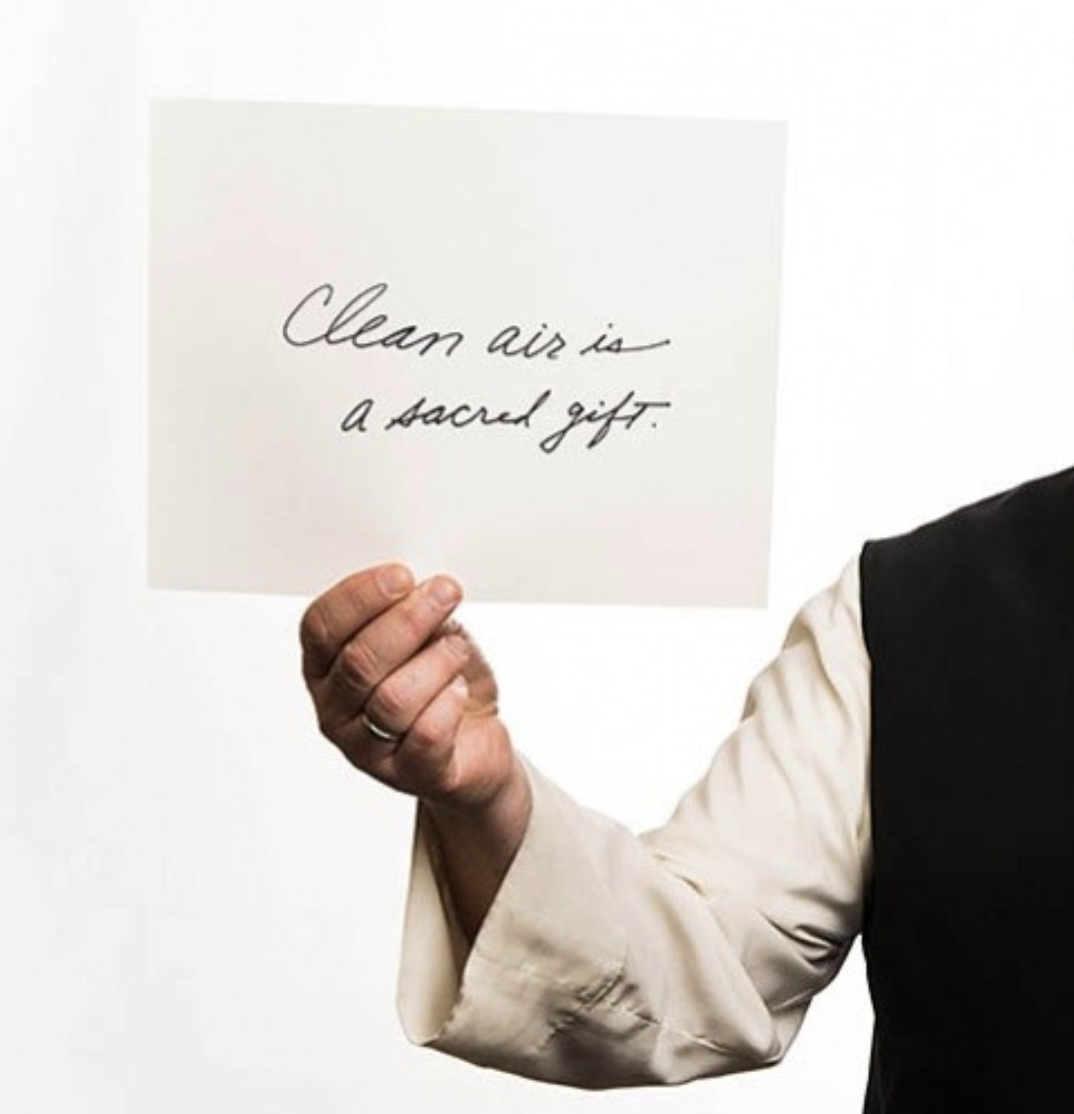 Clean air is
a sacred gift.